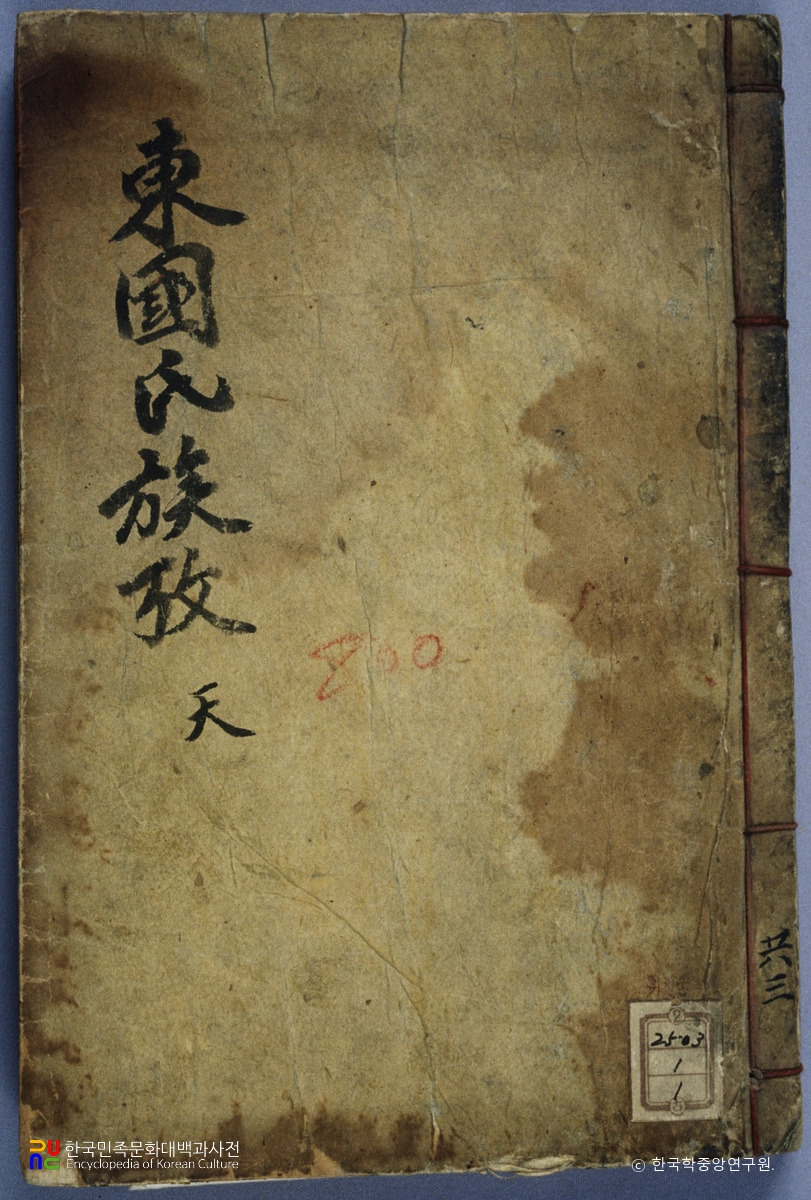 東國氏族攷
天
800
共三
2503
1
1
한국민족문화대백과사전
Encyclopedia of Korean Culture
© 한국학중앙연구원.